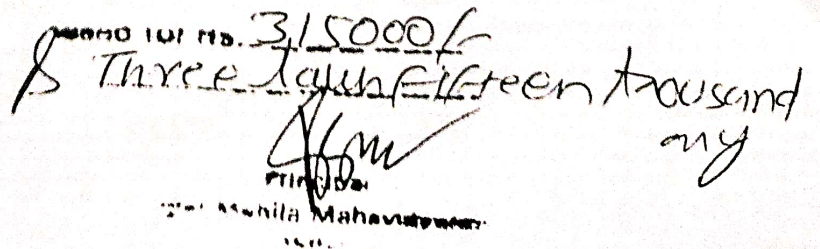 for Rs. 3,15000/-
Three Lakh Fifteen thousand
only
Principal
Mahila Mahavidyalaya